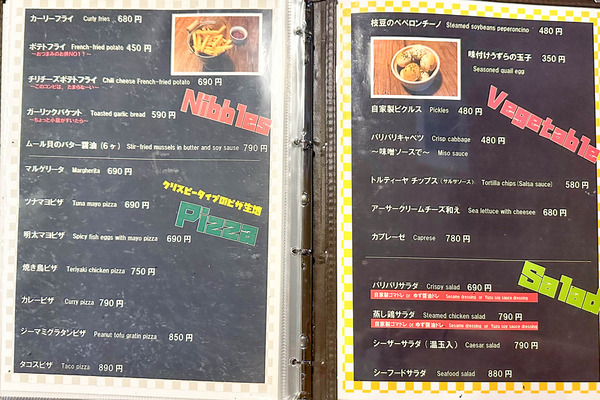 カーリーフライ Curly fries 680円
ポテトフライ French-fried potato 450円
～おつまみのお供NO1！～
チリチーズポテトフライ Chili cheese French-fried potato 690円
～このコンビは、たまらな～い～
Nibbles
ガーリックバケット Toasted garlic bread 590円
～ちょっと小腹がすいたら～
ムール貝のバター醤油（6ヶ） Stir-fried mussels in butter and soy sause 790円
マルゲリータ Margherita 690円
クリスピータイプのピザ生地
Pizza
ツナマヨピザ Tuna mayo pizza 690円
明太マヨピザ Spicy fish eggs with mayo pizza 690円
焼き鳥ピザ Teriyaki chicken pizza 750円
カレーピザ Curry pizza 790円
ジーマミグラタンピザ Peanut tofu gratin pizza 850円
タコスピザ Taco pizza 890円
枝豆のペペロンチーノ Steamed soybeans peperoncino 480円
味付けうずらの玉子 350円
Seasoned quail egg
Vegetable
自家製ピクルス Pickles 480円
パリパリキャベツ Crisp cabbage 480円
～味噌ソースで～ Miso sauce
トルティーヤ チップス（サルサソース） Tortilla chips(Salsa sauce) 580円
アーサークリームチーズ和え Sea lettuce with cheesee 680円
カプレーゼ Caprese 780円
Salad
パリパリサラダ Crispy salad 690円
自家製ゴマドレ or ゆず醤油ドレ Sesame dressing or Yuzu soy sauce dressing
蒸し鶏サラダ Steamed chicken salad 790円
自家製ゴマドレ or ゆず醤油ドレ Sesame dressing or Yuzu soy sauce dressing
シーザーサラダ（温玉入） Caesar salad 790円
シーフードサラダ Seafood salad 880円